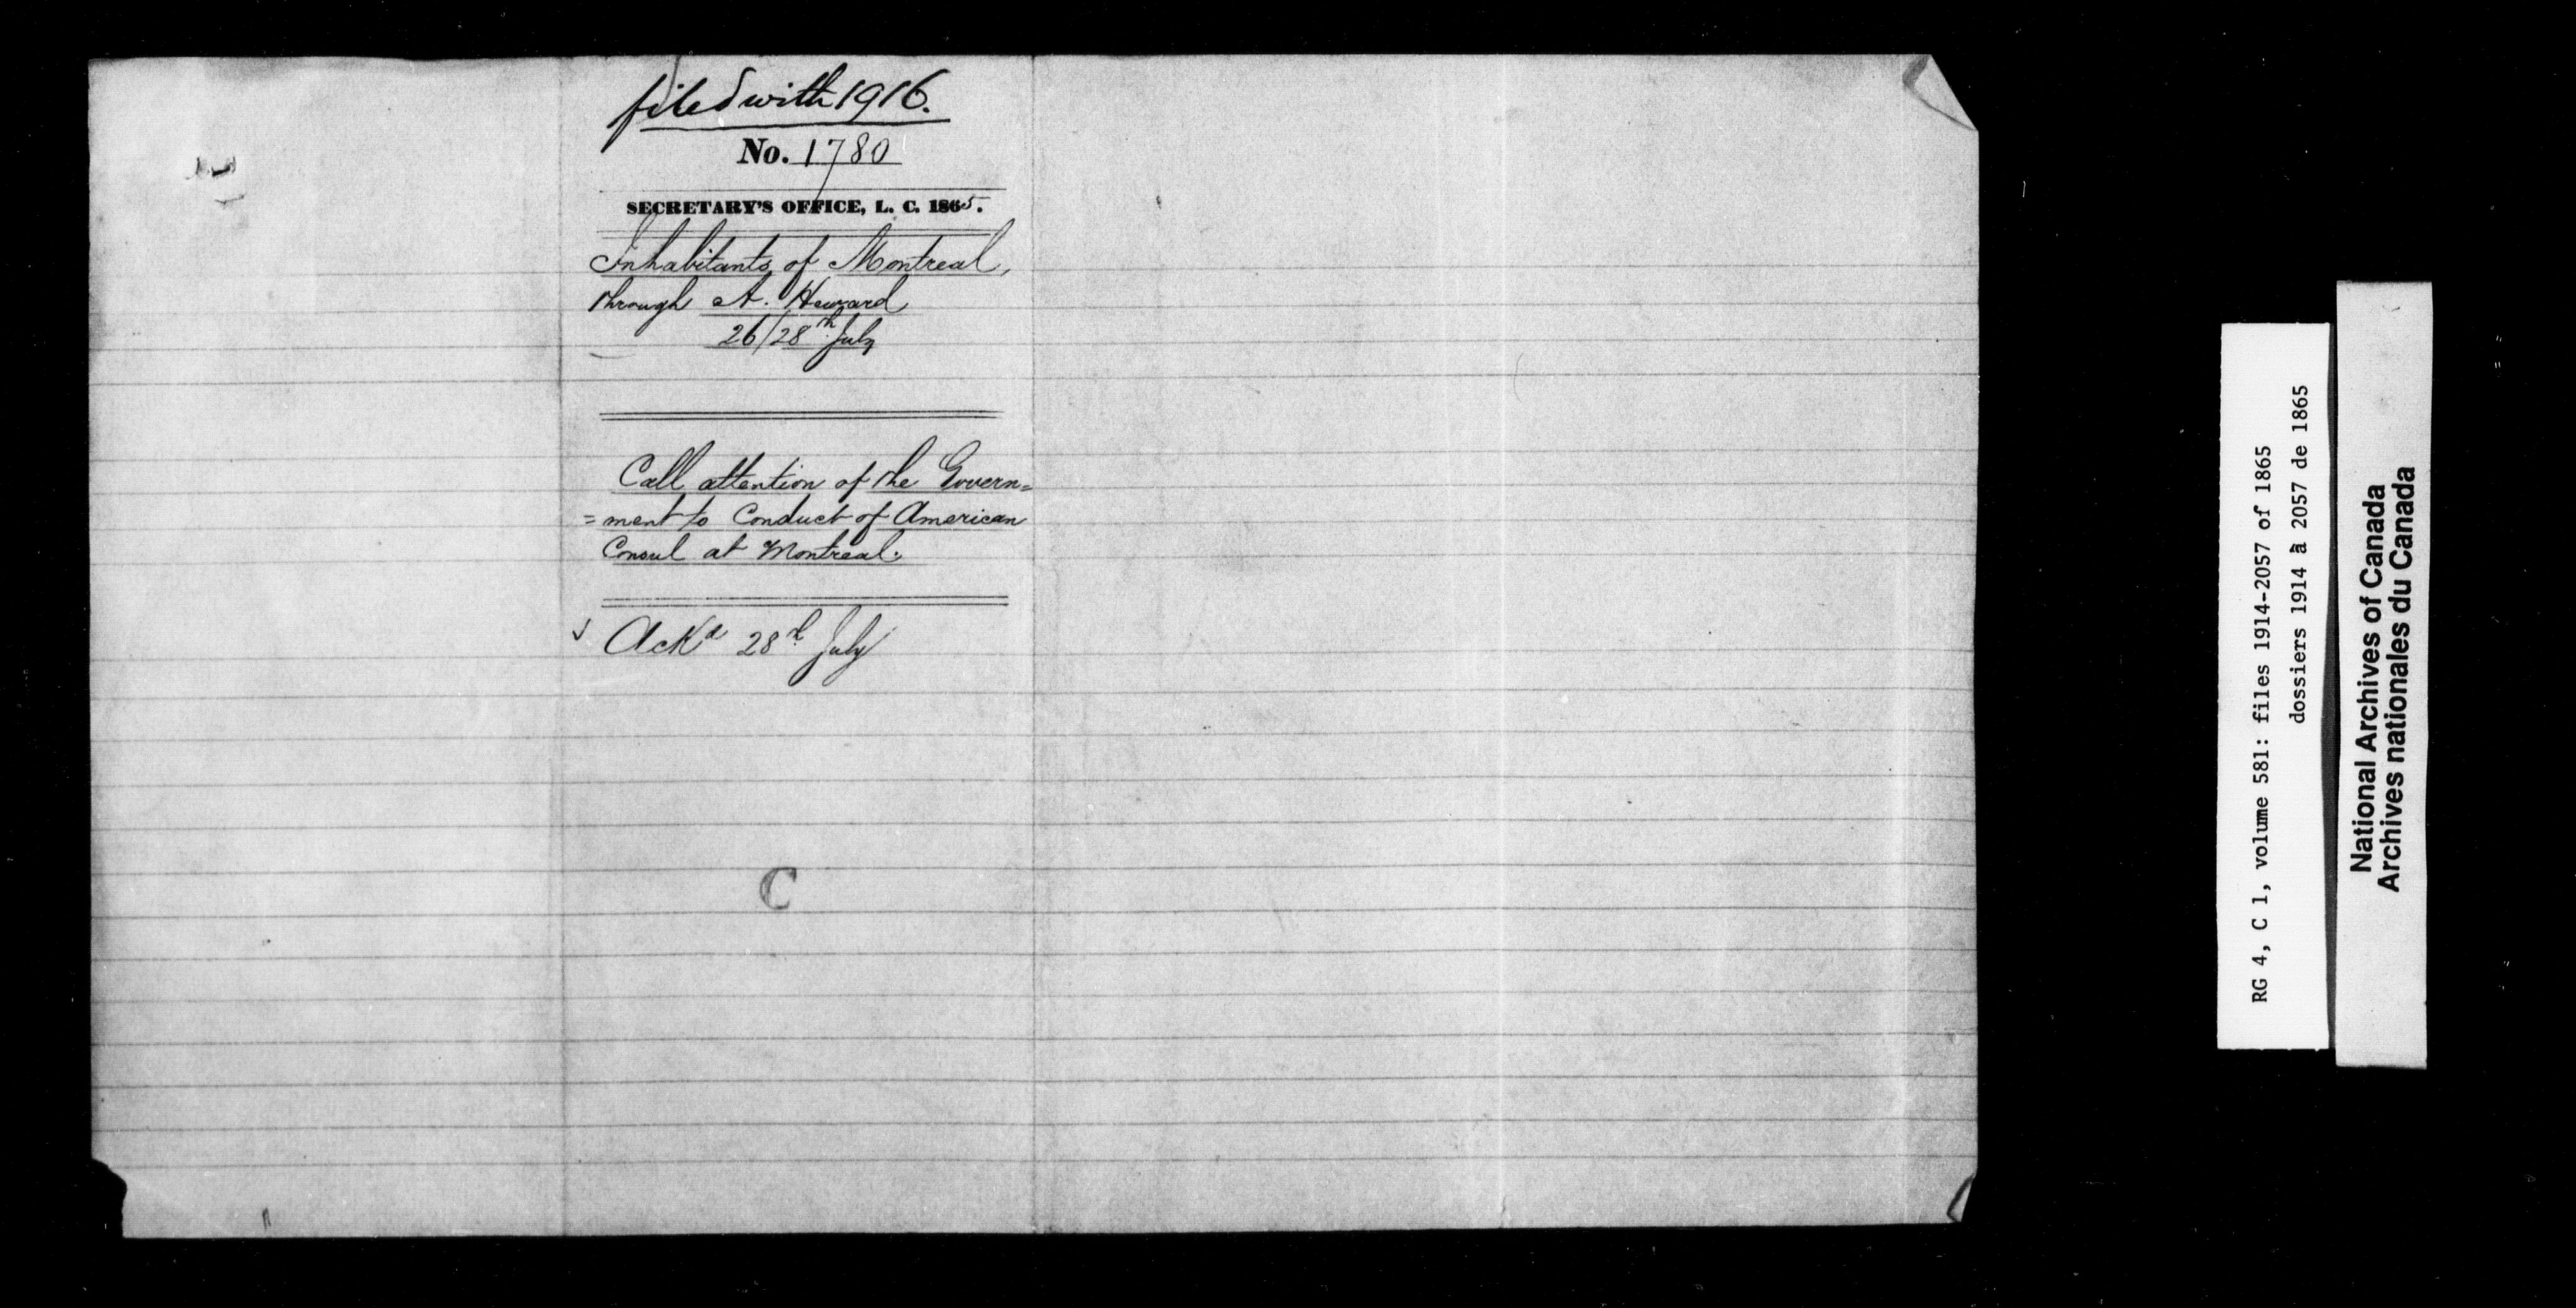 filed with 1916.
No. 1780
SECRETARY'S OFFICE, L. C. 1865.
Inhabitants of Montreal,
through A. Heward
26/28th July
Call attention of the Govern=
=ment to Conduct of American
Consul at Montreal.
Ackd 28th July
C
RG 4, C 1, volume 581: files 1914-2057 of 1865
dossiers 1914 à 2057 de 1865
National Archives of Canada
Archives nationales du Canada